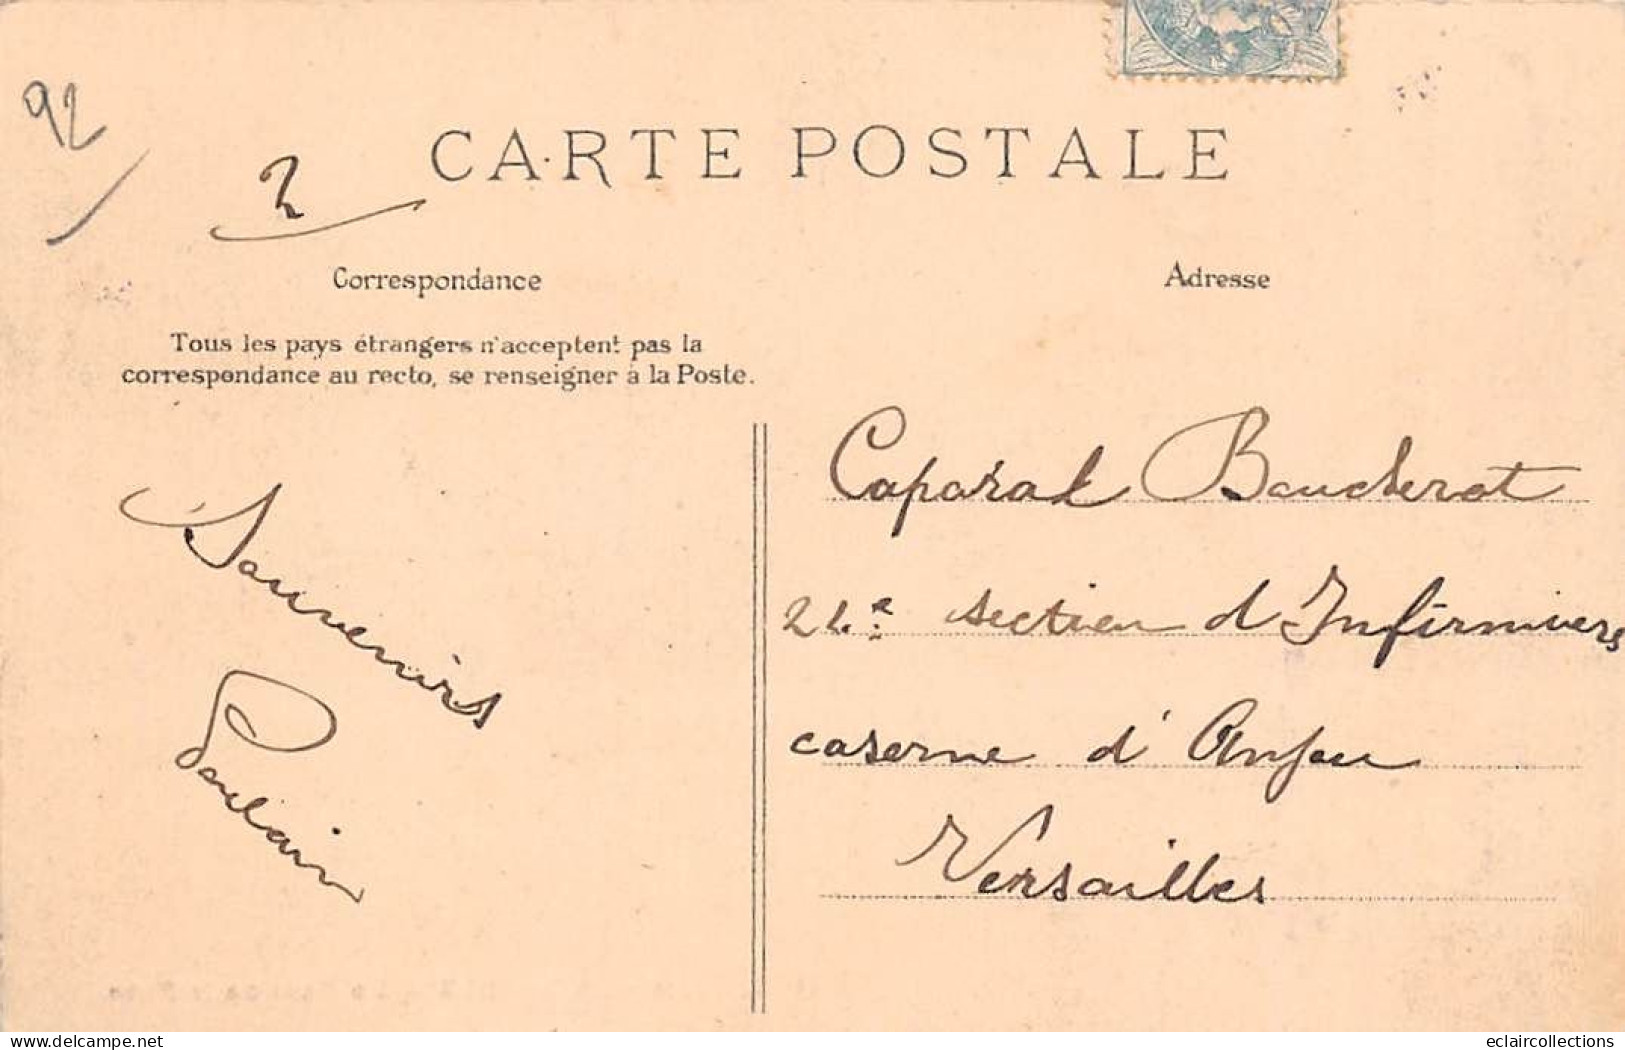 92
2
CARTE POSTALE
Correspondance
Adresse
Tous les pays étrangers n'acceptent pas la
correspondance au recto, se renseigner à la Poste.
Souvenirs
Poulain
Caporal Baucherot
24.e section d Infirmiers
caserne d'Anjou
Versailles
www.delcampe.net
eclaircollections